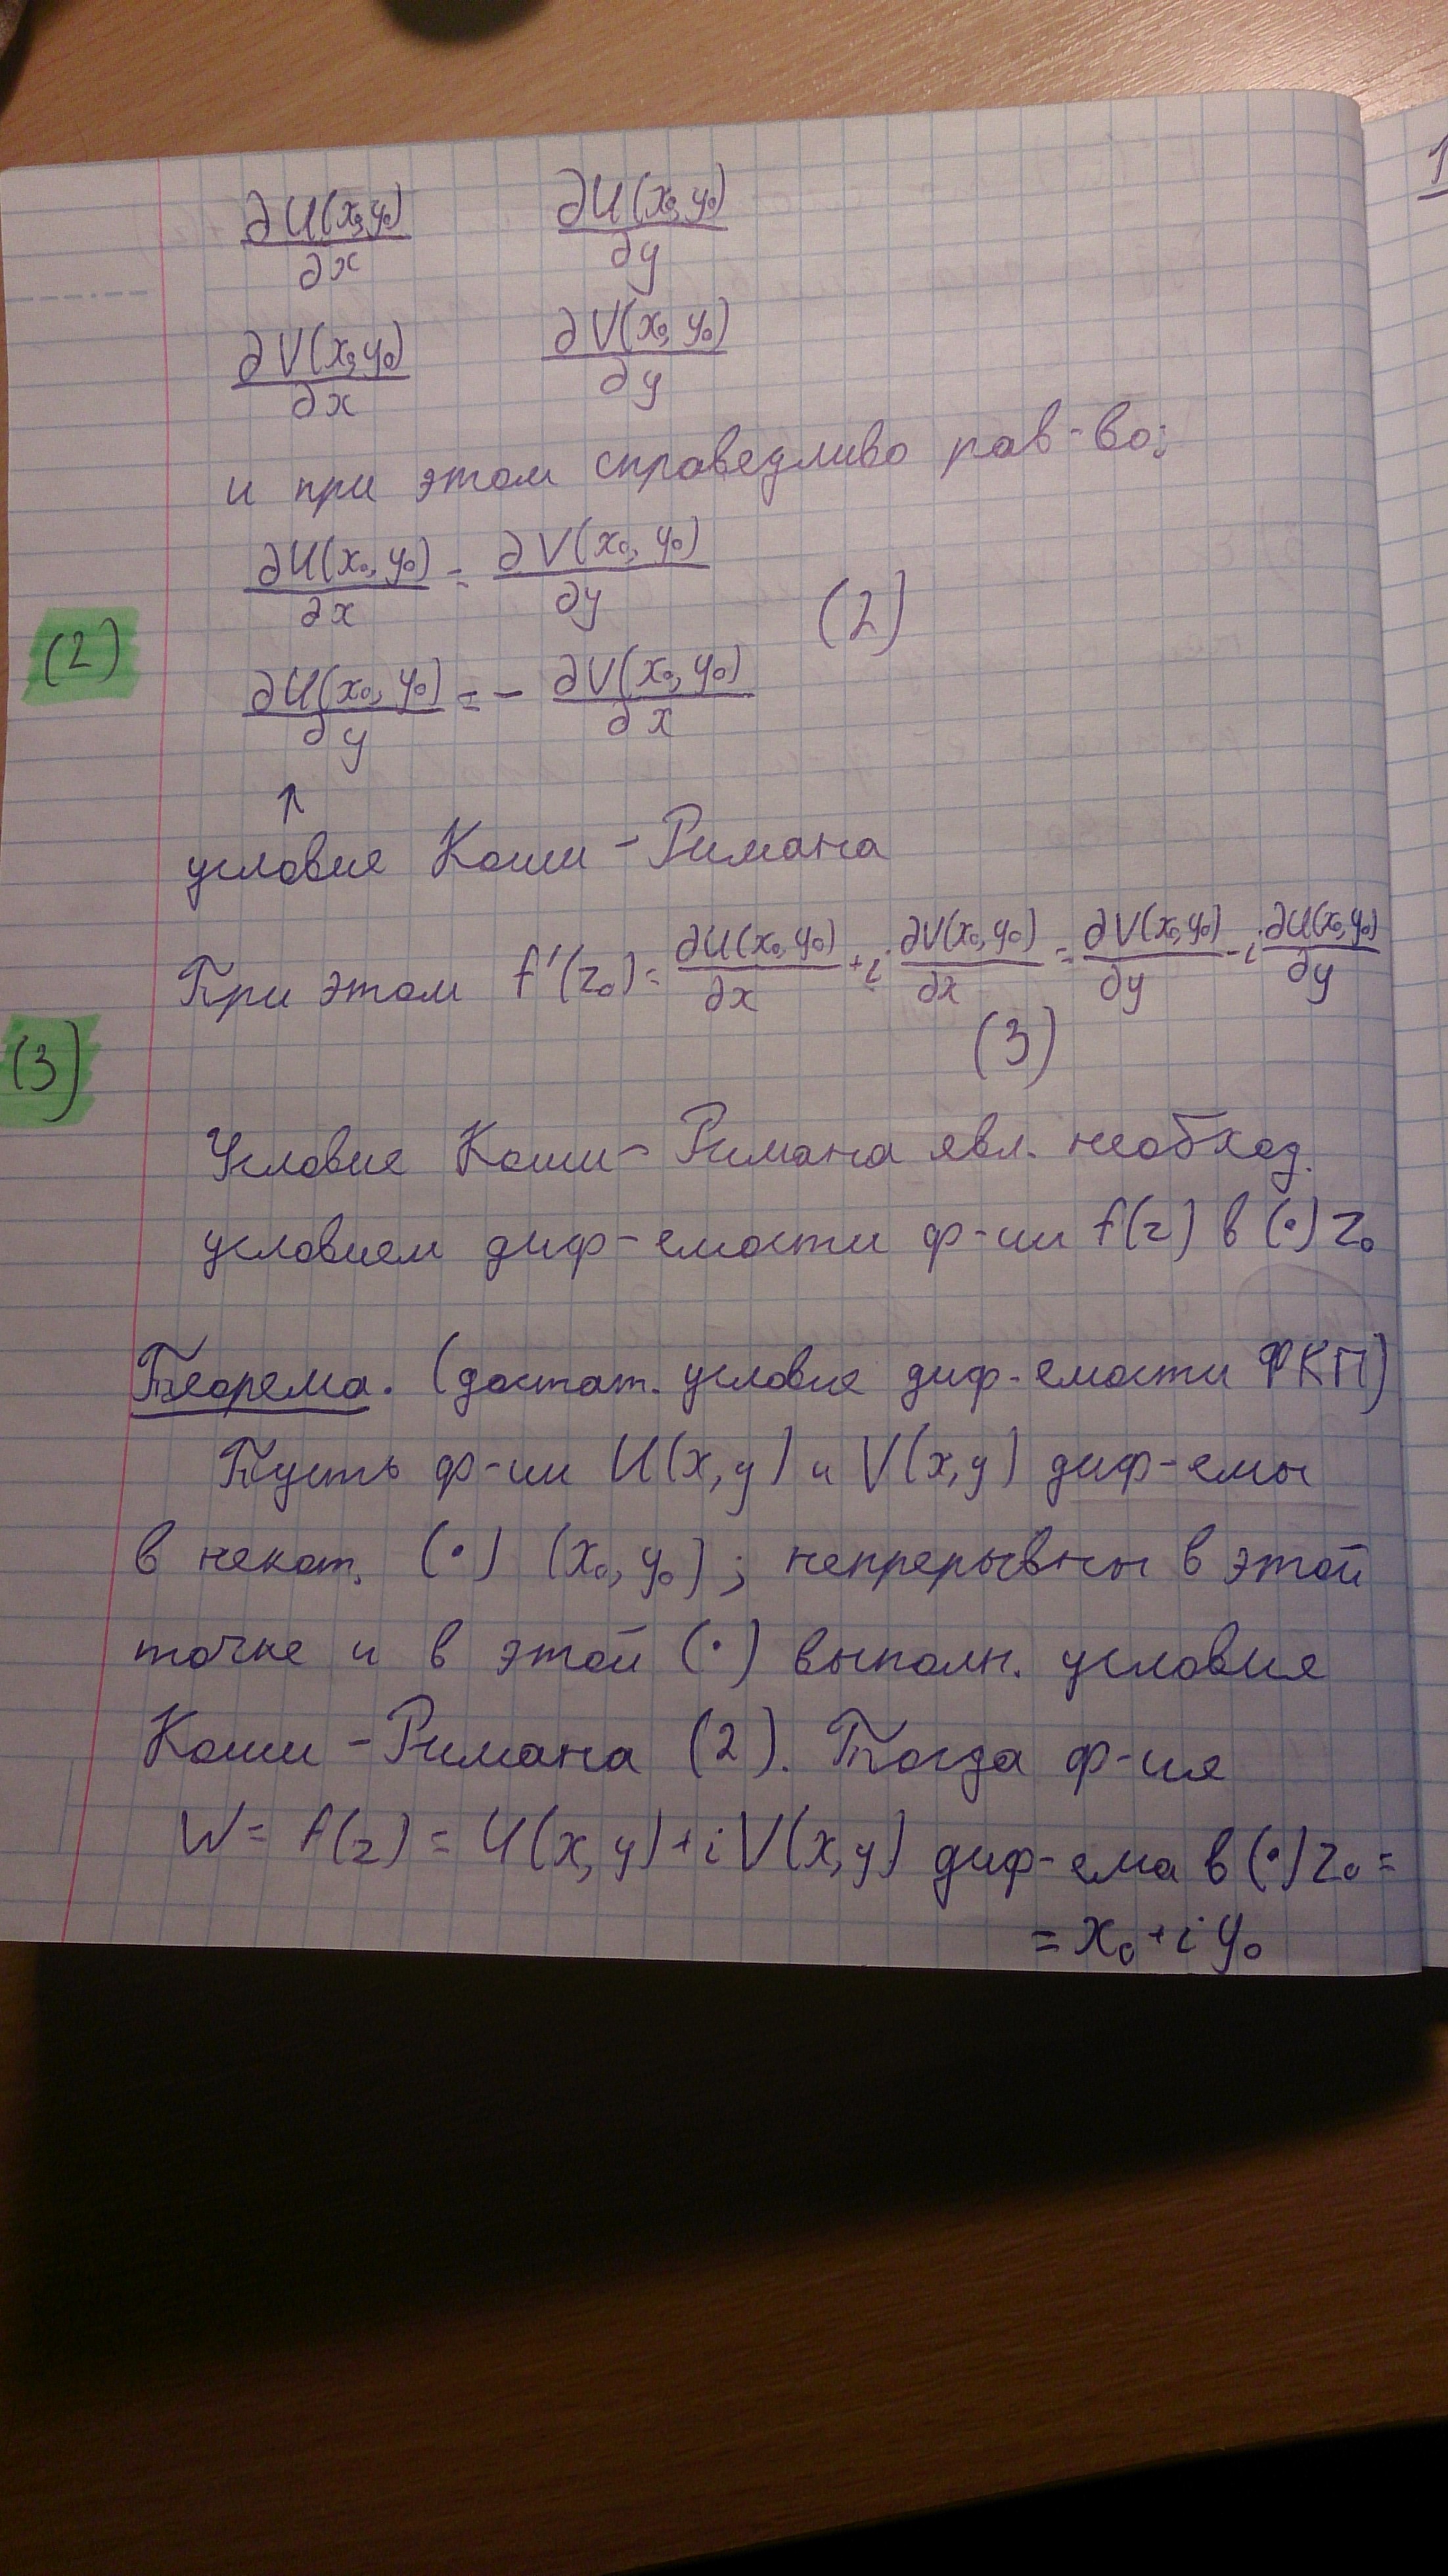 ∂U(x₀,y₀)/∂x ∂U(x₀,y₀)/∂y
∂V(x₀,y₀)/∂x ∂V(x₀,y₀)/∂y
и при этом справедливо рав-во:
∂U(x₀,y₀)/∂x = ∂V(x₀,y₀)/∂y
(2) (2)
∂U(x₀,y₀)/∂y = - ∂V(x₀,y₀)/∂x
↑
условие Коши-Римана
При этом f'(z₀) = ∂U(x₀,y₀)/∂x + i ∂V(x₀,y₀)/∂x = ∂V(x₀,y₀)/∂y - i ∂U(x₀,y₀)/∂y
(3) (3)
Условие Коши-Римана явл. необход.
условием диф-емости ф-ии f(z) в (·) z₀
Теорема. (достат. условие диф-емости ФКП)
Пусть ф-ии U(x,y) и V(x,y) диф-емы
в некот. (·) (x₀,y₀); непрерывны в этой
точке и в этой (·) выполн. условия
Коши-Римана (2). Тогда ф-ия
W = f(z) = U(x,y)+iV(x,y) диф-ема в (·) z₀ =
= x₀+iy₀
1